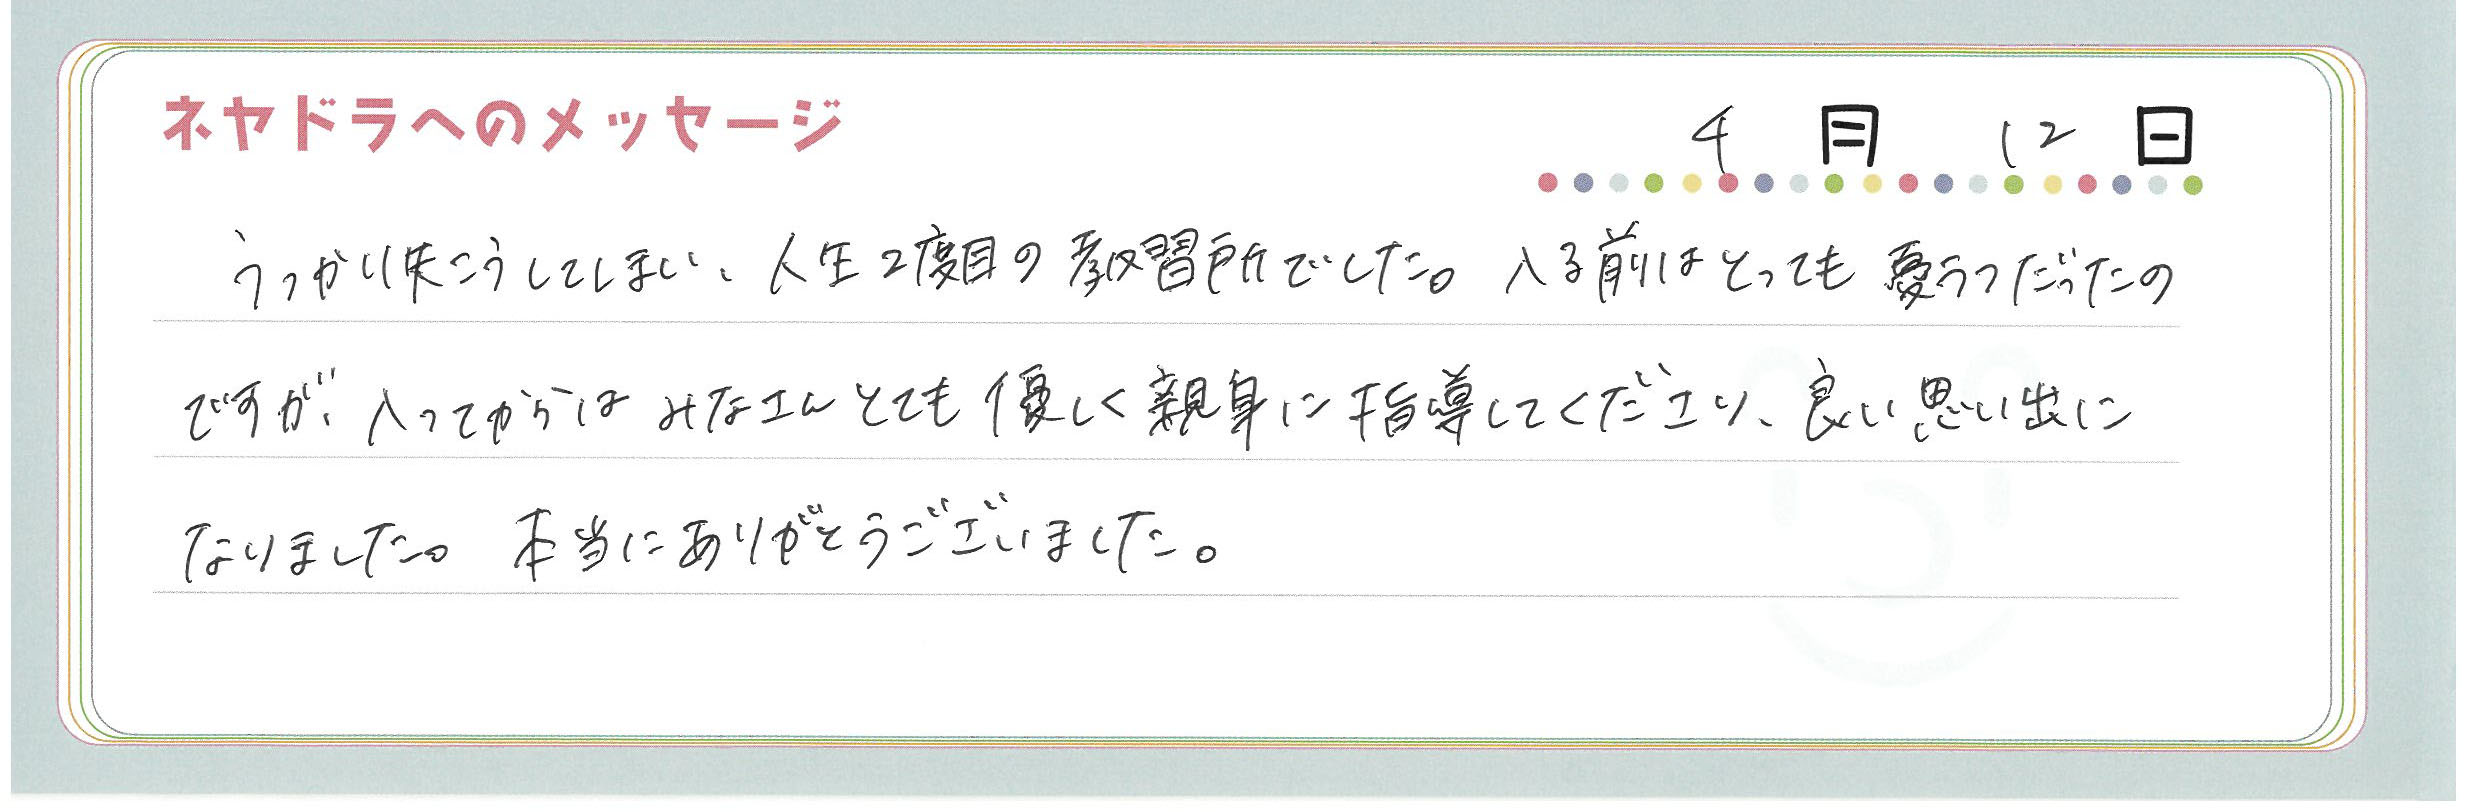 ネヤドラへのメッセージ
4月12日
うっかり失こうしてしまい、人生2度目の教習所でした。入る前はとっても憂うつだったの
ですが、入ってからはみなさんとても優しく親身に指導してくださり、良い思い出に
なりました。本当にありがとうございました。